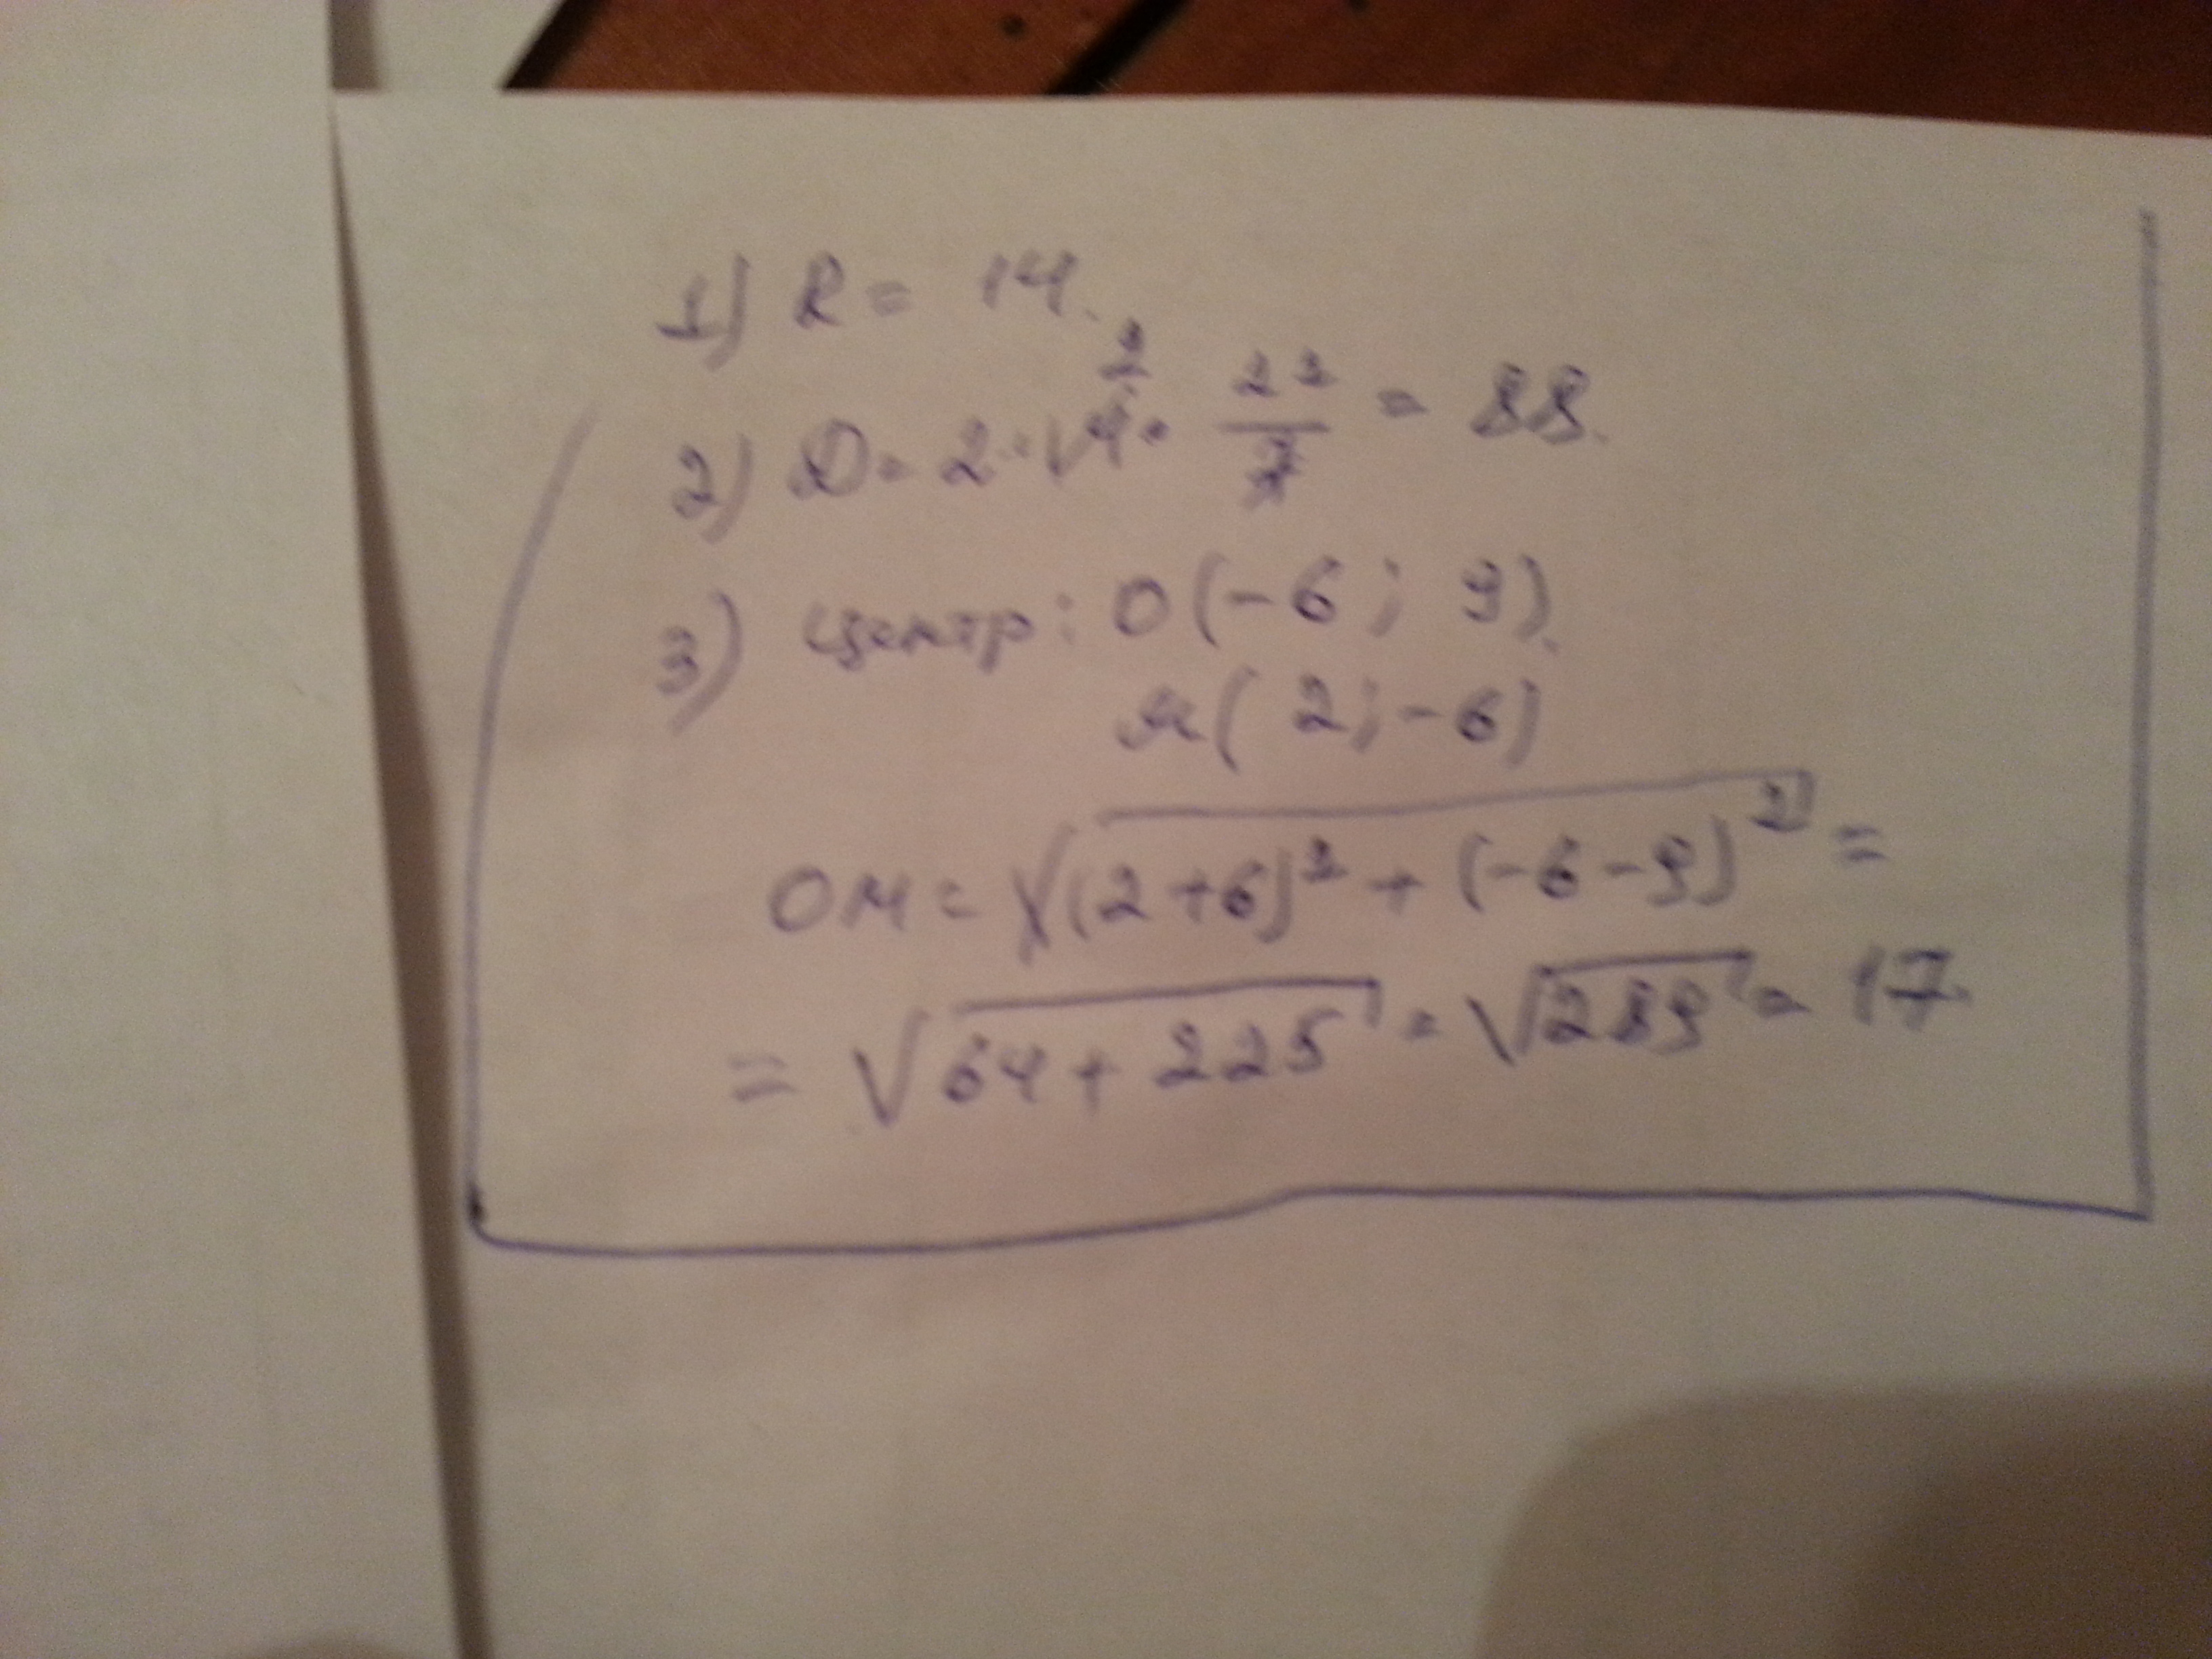 1) R = 14.
2) D = 2 · 14 · 22/7 = 88.
2
3) Центр: O(-6; 9).
м( 2; -6)
OM = √((2+6)² + (-6-9)²) =
= √(64 + 225) = √289 = 17.